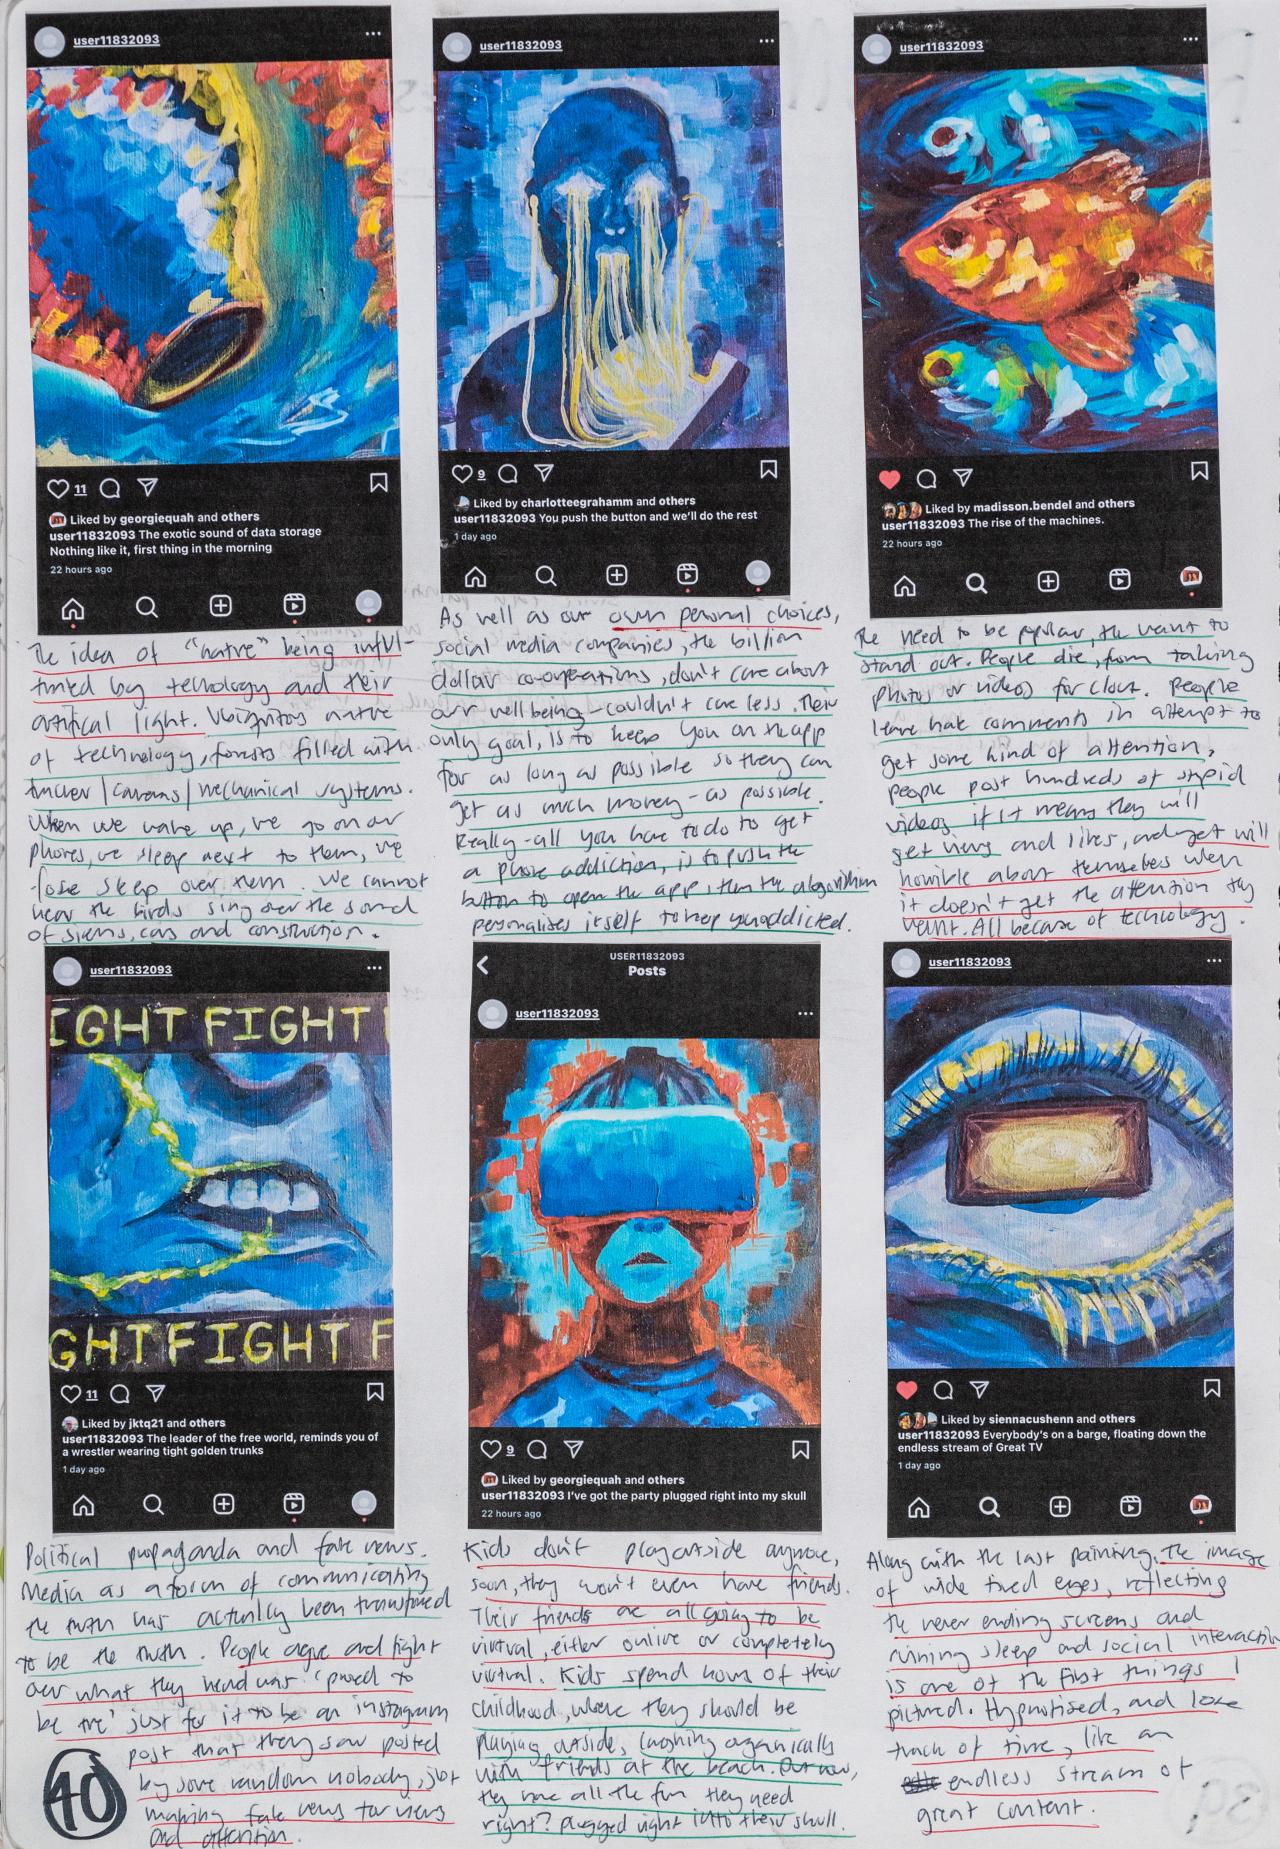 user11832093
11
Liked by georgiequah and others
user11832093 The exotic sound of data storage
Nothing like it, first thing in the morning
22 hours ago
The idea of "native" being inful-
tured by technology and their
artifical light. Ubiquitos native
of technology, forests filled with
/ mechanical systems.
When we wake up, we go on our
phones, we sleep next to them, we
lose sleep over them. We cannot
hear the birds sing over the sound
of sirens, cars and construction.
user11832093
9
Liked by charlotteegrahamm and others
user11832093 You push the button and we'll do the rest
1 day ago
As well as our own personal choices,
social media companies, the billion
dollar co-operations, don't care about
our wellbeing couldn't care less. Their
only goal, is to keep you on the app
for as long as possible so they can
get as much money - as possible.
Really - all you have to do to get
a phone addiction, is to push the
button to open the app, then the algorithim
personalises itself to keep you addicted.
user11832093
Liked by madisson.bendel and others
user11832093 The rise of the machines.
22 hours ago
The need to be popular, the want to
stand out. People die, from taking
photos or videos for clout. People
leave hate comments in attempt to
get some kind of attention,
people post hundreds of stupid
videos if it means they will
get views and likes, and get will
horrible about themselves when
it doesn't get the attention they
want. All because of technology.
user11832093
IGHT FIGHT
GHT FIGHT F
11
Liked by jktq21 and others
user11832093 The leader of the free world, reminds you of
a wrestler wearing tight golden trunks
1 day ago
Political propaganda and fake news.
Media as a form of communicating
the truth has actually been transformed
to be the truth. People argue and fight
over what they heard was 'proved to
be true' just for it to be an instagram
post that they saw posted
by some random nobody, just
making fake news for views
and attention.
40
USER11832093
Posts
user11832093
9
Liked by georgiequah and others
user11832093 I've got the party plugged right into my skull
22 hours ago
Kids don't play outside anymore,
soon, they won't even have friends.
Their friends are all going to be
virtual, either online or completely
virtual. Kids spend hours of their
childhood, where they should be
playing outside, laughing organically
with friends at the beach. But now,
they have all the fun they need
right? plugged right into their skull.
user11832093
Liked by siennacushenn and others
user11832093 Everybody's on a barge, floating down the
endless stream of Great TV
1 day ago
Along with the last painting, the image
of wide tired eyes, reflecting
the never ending screens and
ruining sleep and social interaction
is one of the first things I
pictured. Hypnotised, and lose
track of time, like an
endless stream of
great content.
39